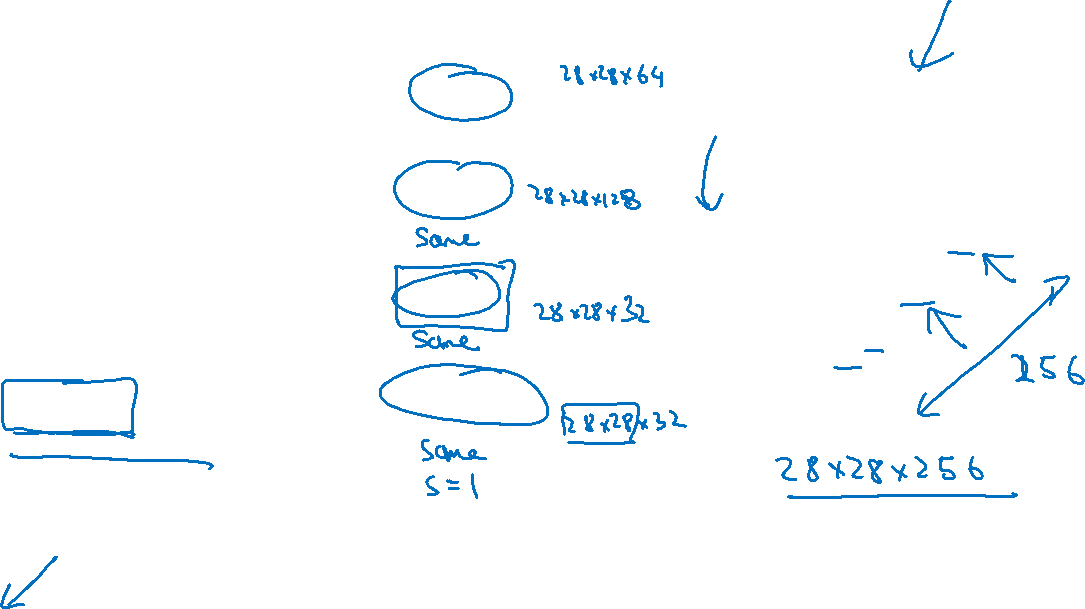 28×28×64
28×28×128
Same
28×28×32
Same
28×28×32
Same
S=1
256
28×28×256